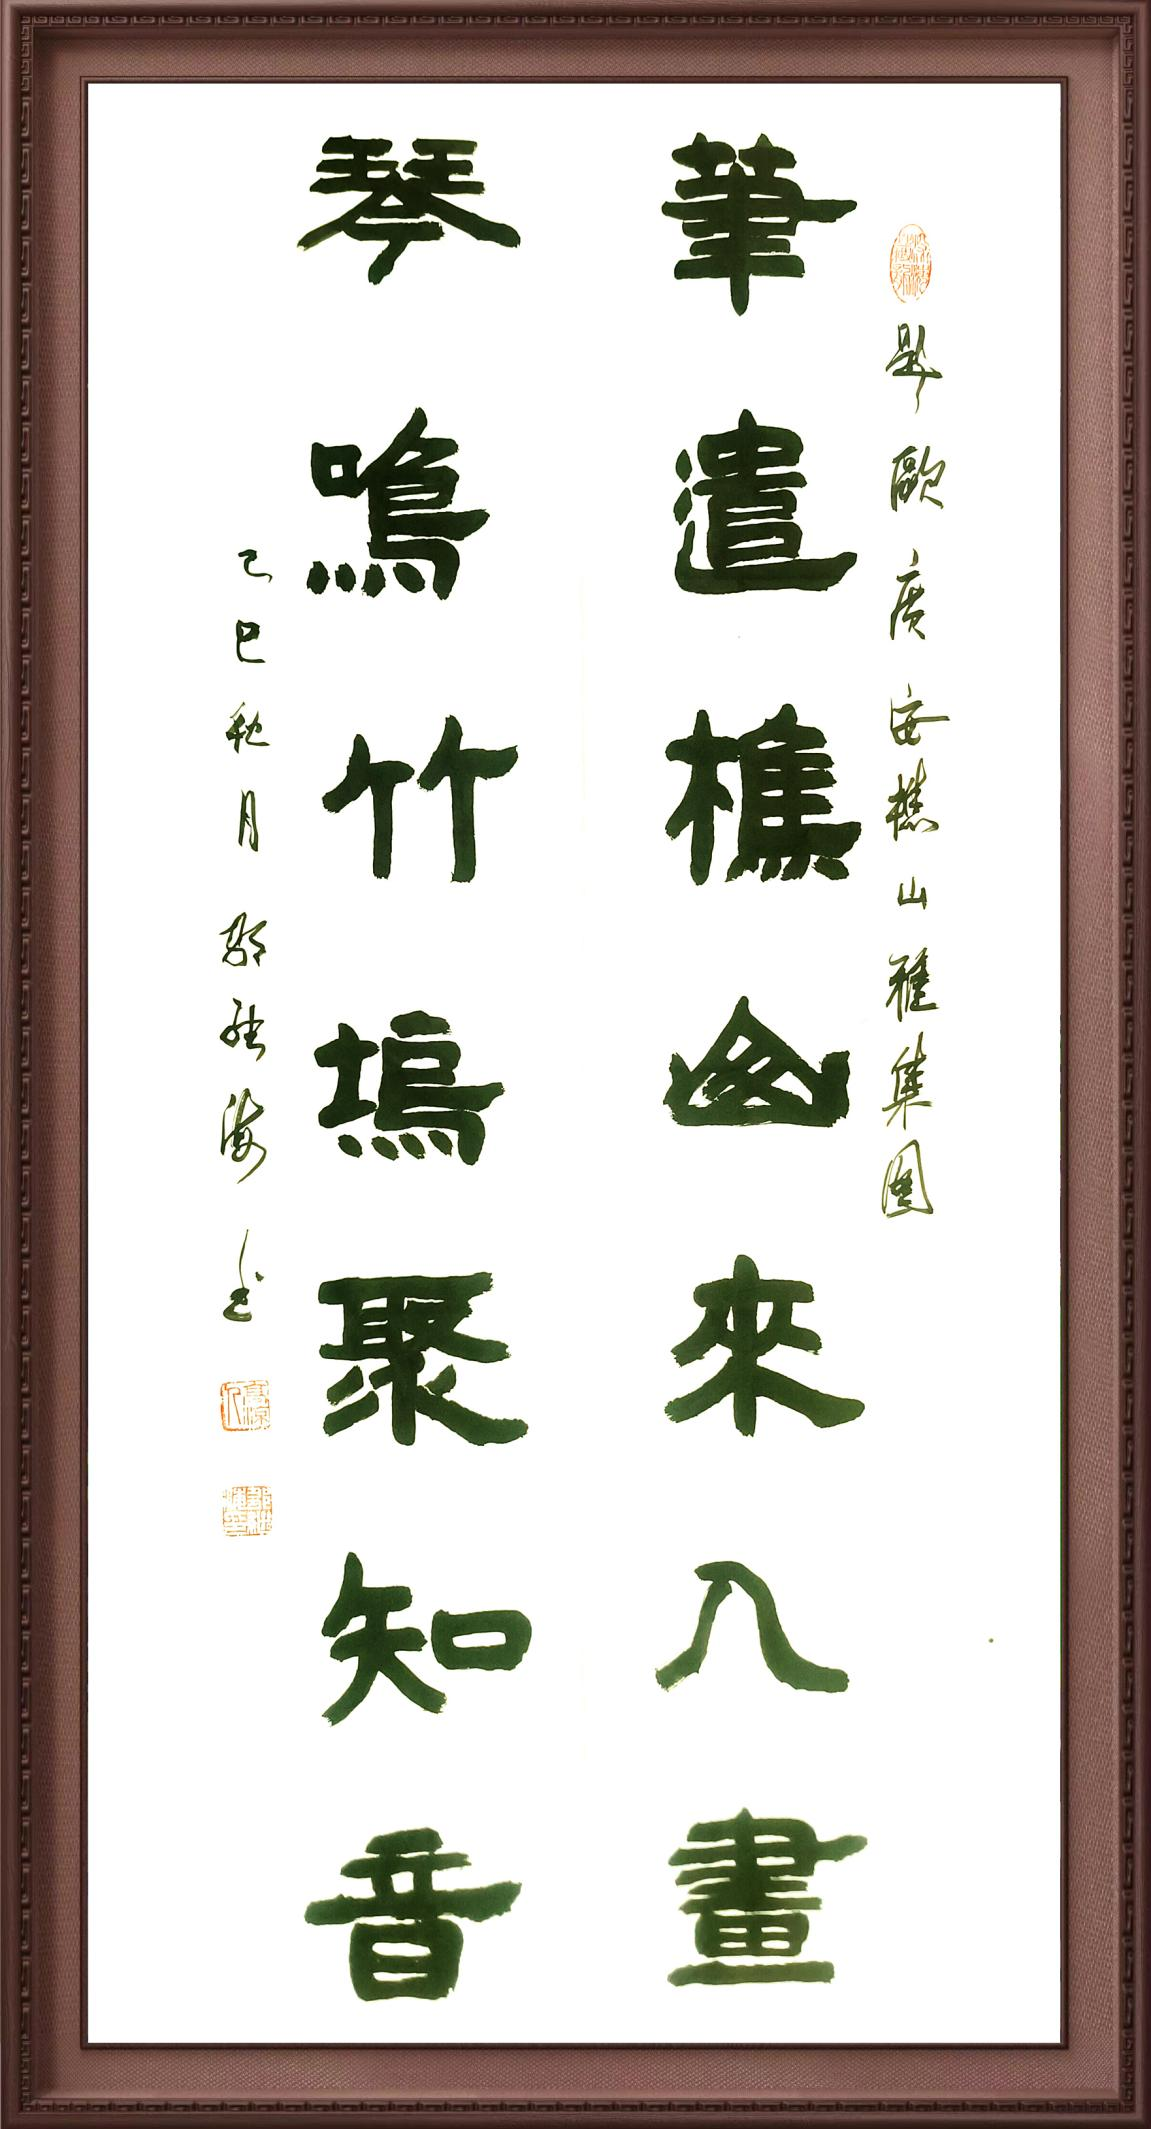 題歐廣安樵山雅集圖
筆遣樵山來入畫
琴鳴竹塢聚知音
乙巳秋月